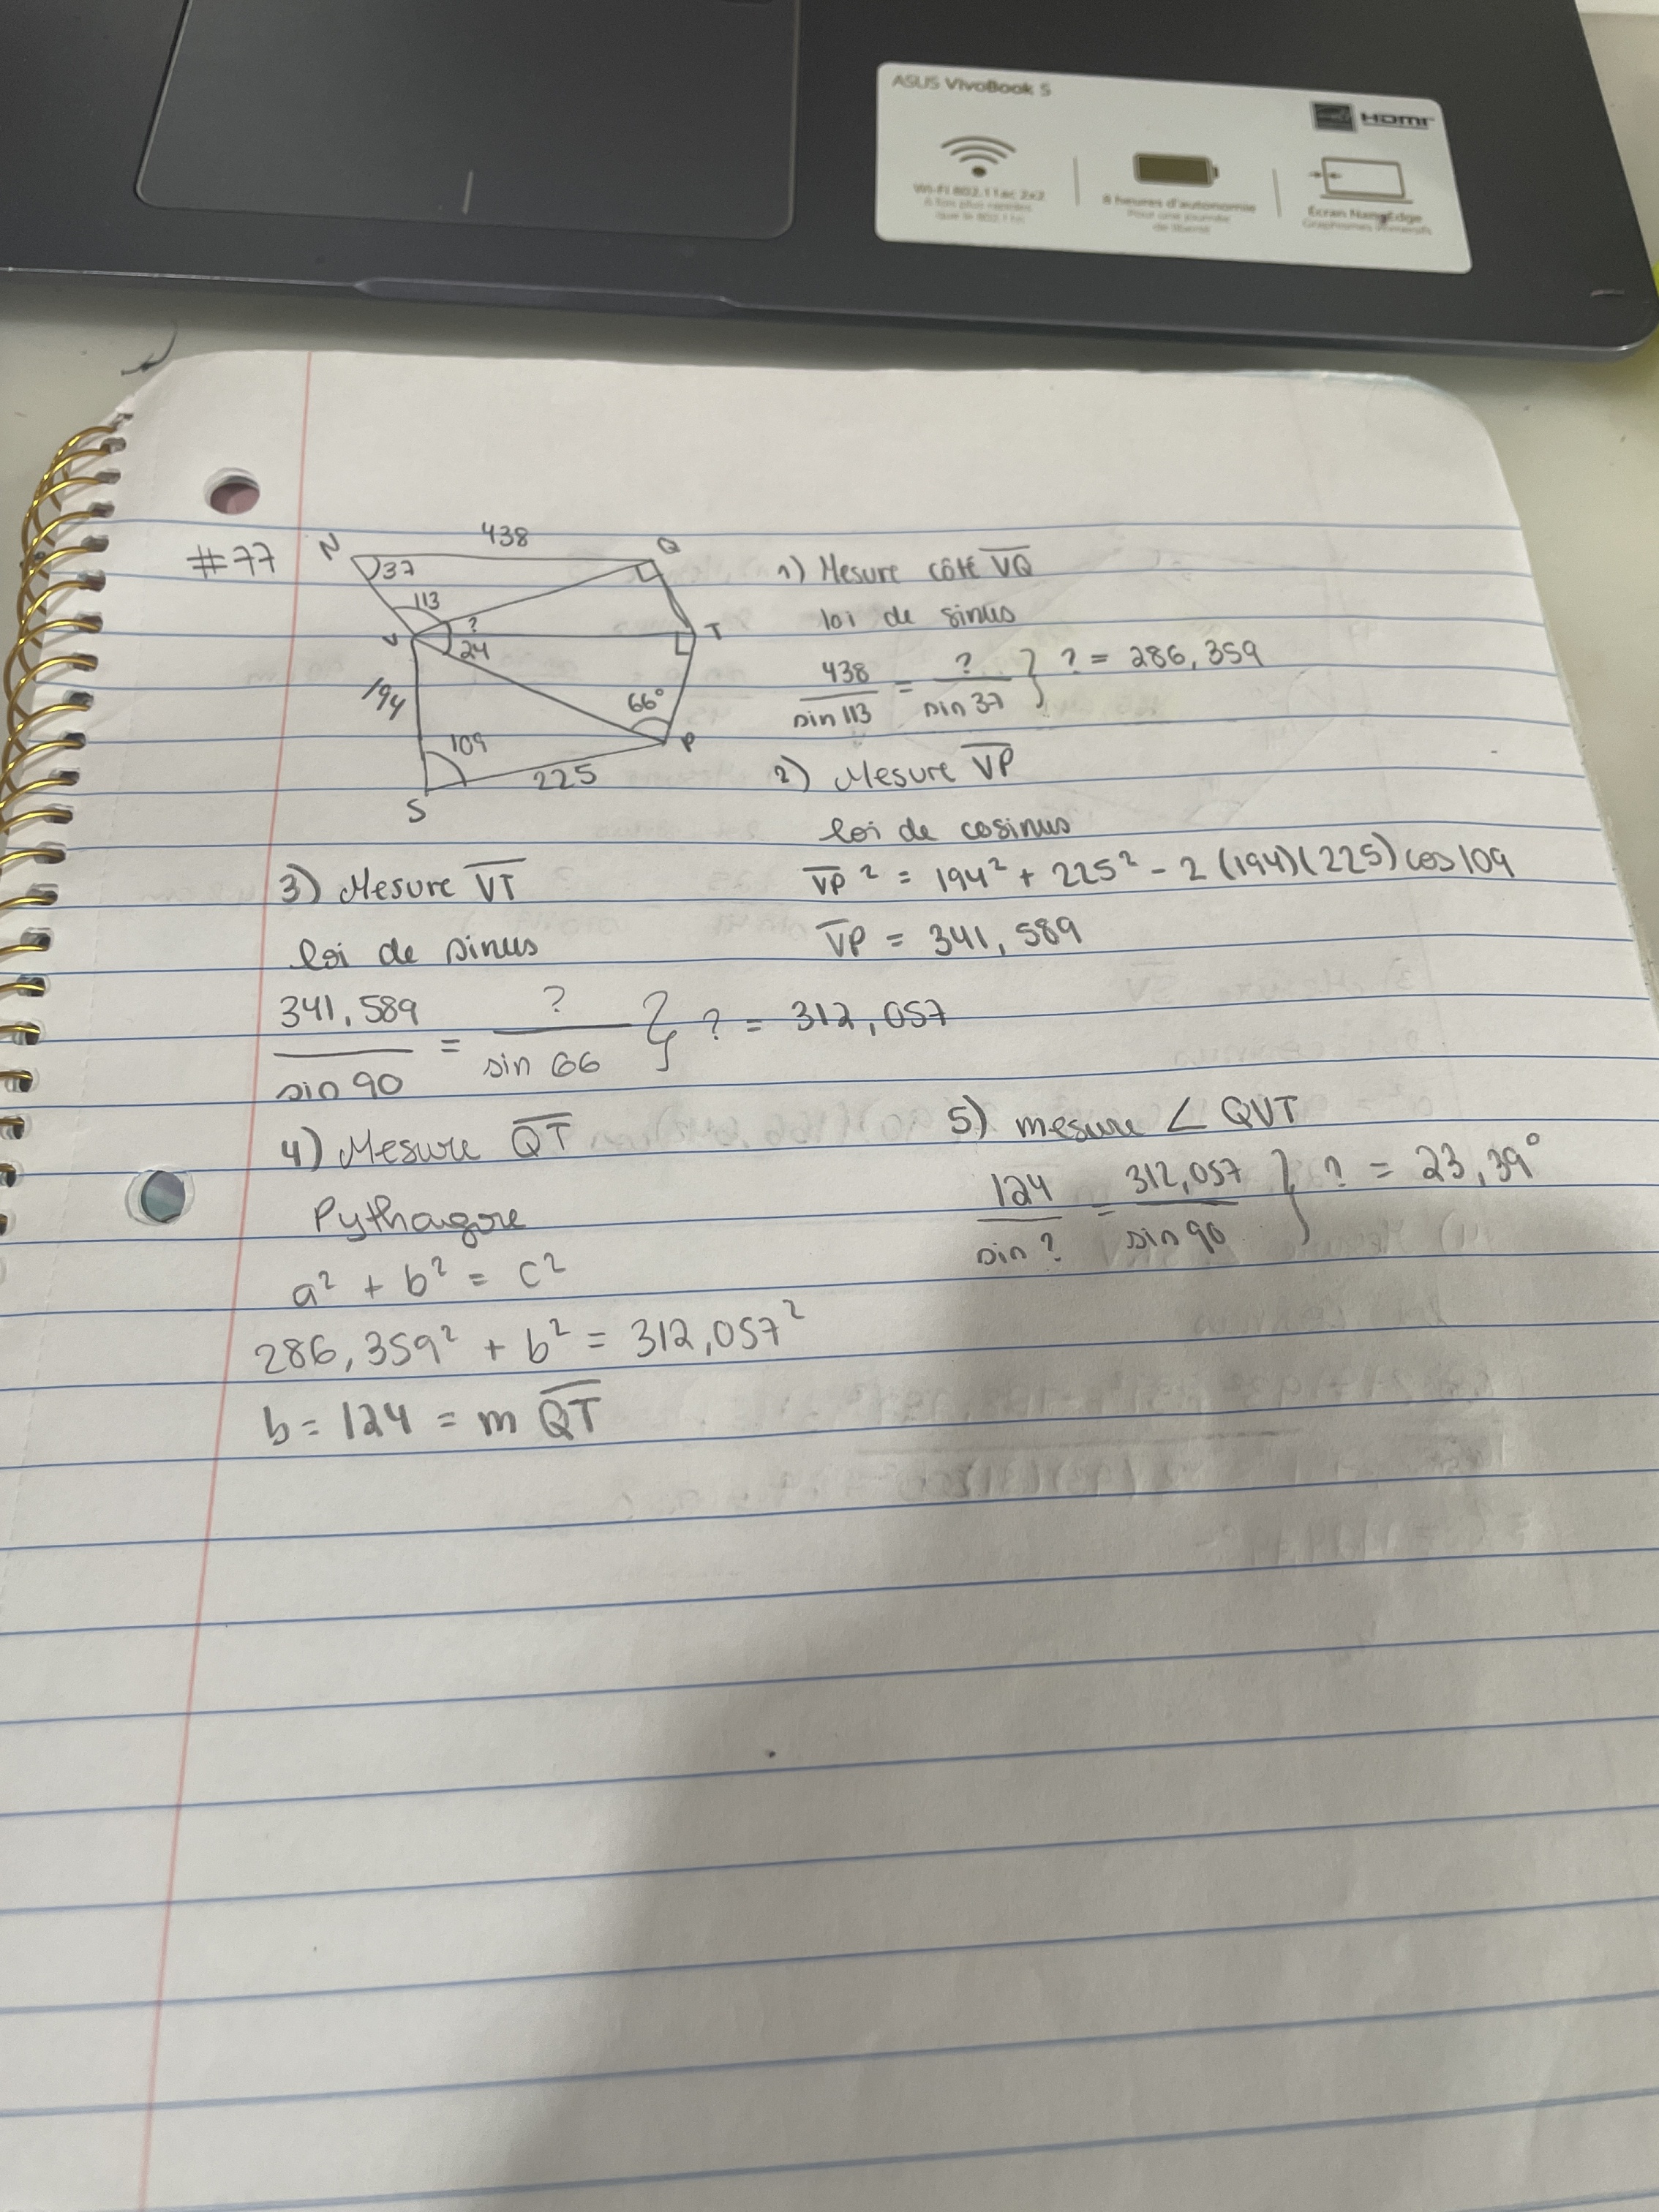 ASUS VivoBook S
HDMI
Wi-Fi 802.11ac 2x2
6 fois plus rapides
que le 802.11n
8 heures d'autonomie
Pour une journée
de liberté
Écran NanoEdge
Graphismes immersifs
#77
N
438
Q
37
113
?
V
24
T
194
66°
109
P
225
S
1) Mesure côté VQ
loi de sinus
438 / sin 113 = ? / sin 37 } ? = 286,359
2) Mesure VP
loi de cosinus
VP² = 194² + 225² - 2 (194)(225) cos 109
VP = 341,589
3) Mesure VT
loi de sinus
341,589 / sin 90 = ? / sin 66 } ? = 312,057
4) Mesure QT
Pythagore
a² + b² = c²
286,359² + b² = 312,057²
b = 124 = m QT
5) mesure ∠ QVT
124 / sin ? = 312,057 / sin 90 } ? = 23,39°